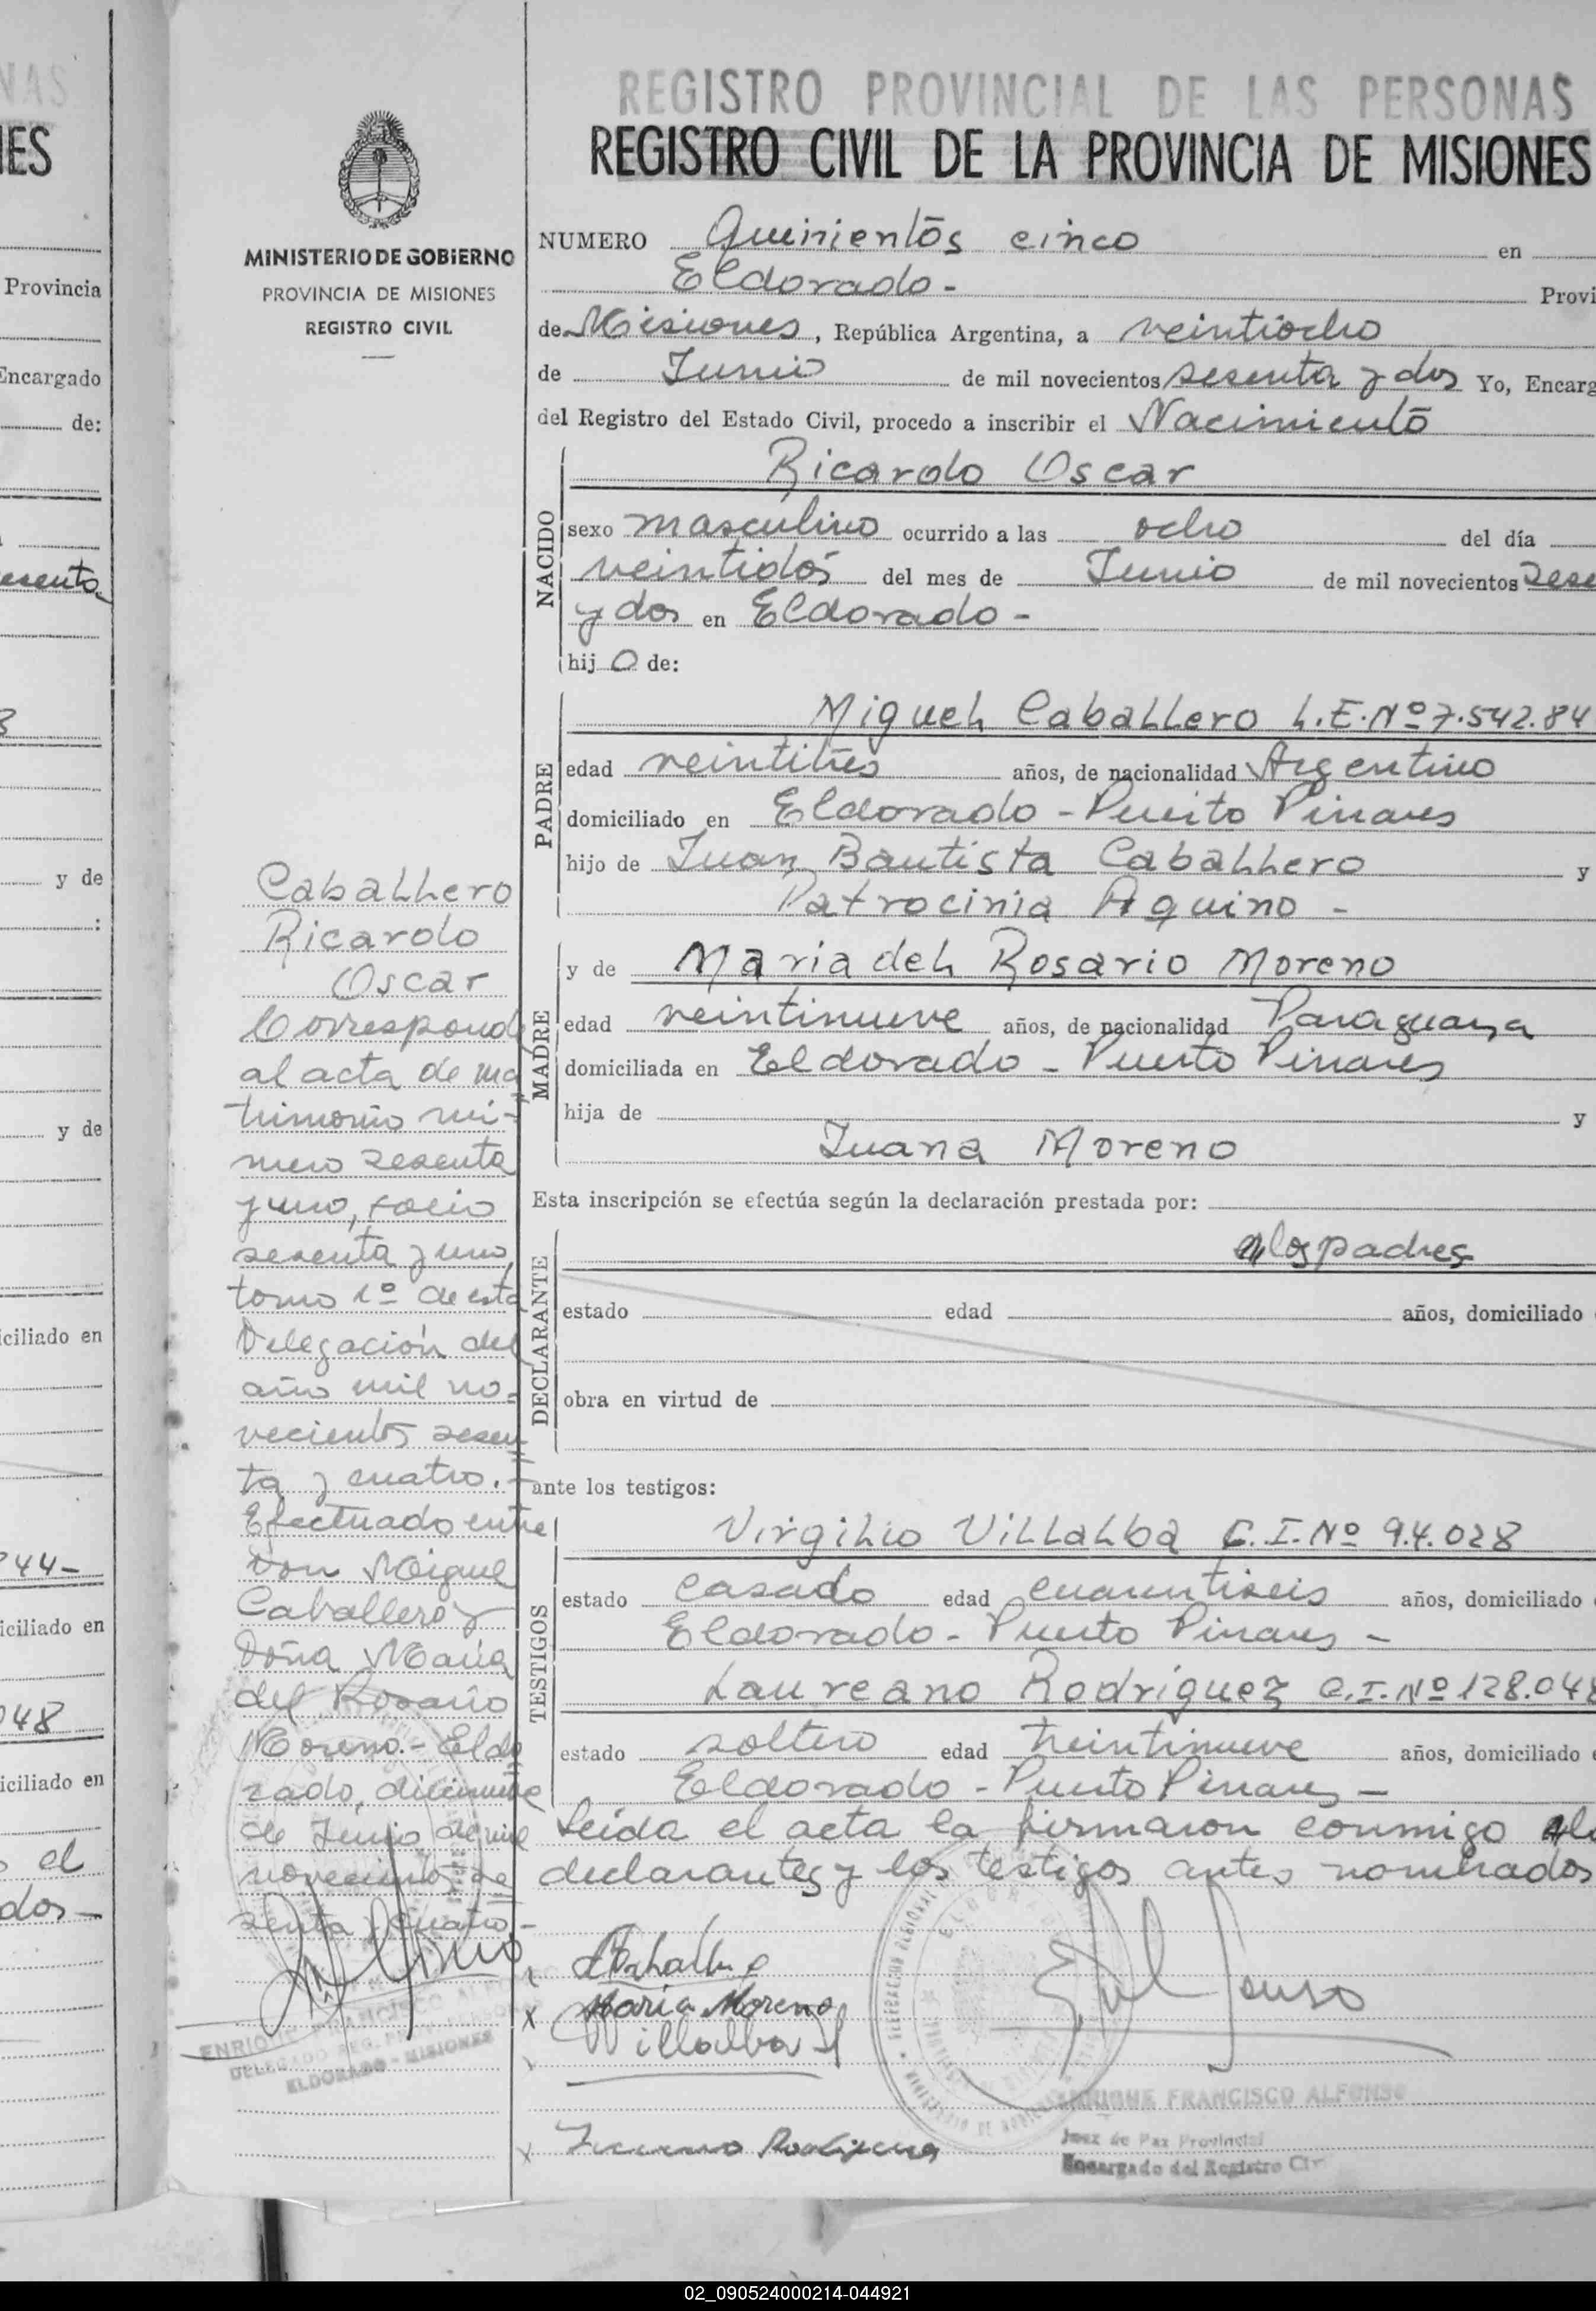 NAS
IES
Provincia
Encargado
de:
esenta
y de
:
y de
ciliado en
244-
iciliado en
048
iciliado en
el
dos-
MINISTERIO DE GOBIERNO
PROVINCIA DE MISIONES
REGISTRO CIVIL
Caballero
Ricardo
Oscar
Correspond
al acta de ma
trimonio nú-
mero sesenta
y uno, folio
sesenta y uno,
tomo 1º de esta
Delegación del
año mil no-
vecientos sesen
ta y cuatro.-
Efectuado entre
Don Miguel
Caballero y
Doña Maria
del Rosario
Moreno.- Eldo
rado, diecinueve
de Junio de mil
novecientos se
senta y cuatro-
ENRIQUE FRANCISCO ALFONSO
DELEGADO REG.
ELDORADO - MISIONES
REGISTRO PROVINCIAL DE LAS PERSONAS
REGISTRO CIVIL DE LA PROVINCIA DE MISIONES
NUMERO Quinientos cinco en
Eldorado- Provi
de Misiones, República Argentina, a veintiocho
de Junio de mil novecientos sesenta y dos Yo, Encarg
del Registro del Estado Civil, procedo a inscribir el Nacimiento
NACIDO
Ricardo Oscar
sexo masculino ocurrido a las ocho del día
veintidos del mes de Junio de mil novecientos sese
y dos en Eldorado-
hij o de:
PADRE
Miguel Caballero L.E.Nº 7.542.84
edad veintitres años, de nacionalidad Argentino
domiciliado en Eldorado - Puerto Pinares
hijo de Juan Bautista Caballero y
Patrocinia Aquino -
MADRE
y de Maria del Rosario Moreno
edad veintinueve años, de nacionalidad Paraguaya
domiciliada en Eldorado - Puerto Pinares
hija de y
Juana Moreno
Esta inscripción se efectúa según la declaración prestada por:
DECLARANTE
los padres
estado edad años, domiciliado
obra en virtud de
ante los testigos:
TESTIGOS
Virgilio Villalba C.I.Nº 9.4.028
estado casado edad cuarentiseis años, domiciliado
Eldorado - Puerto Pinares -
Laureano Rodriguez C.I.Nº 128.048
estado soltero edad treintinueve años, domiciliado
Eldorado - Puerto Pinares -
Leida el acta la firmaron conmigo lo
declarantes y los testigos antes nombrados
Maria Moreno
Villalba
ENRIQUE FRANCISCO ALFONSO
Juez de Paz Provincial
Encargado del Registro Civ
02_090524000214-044921